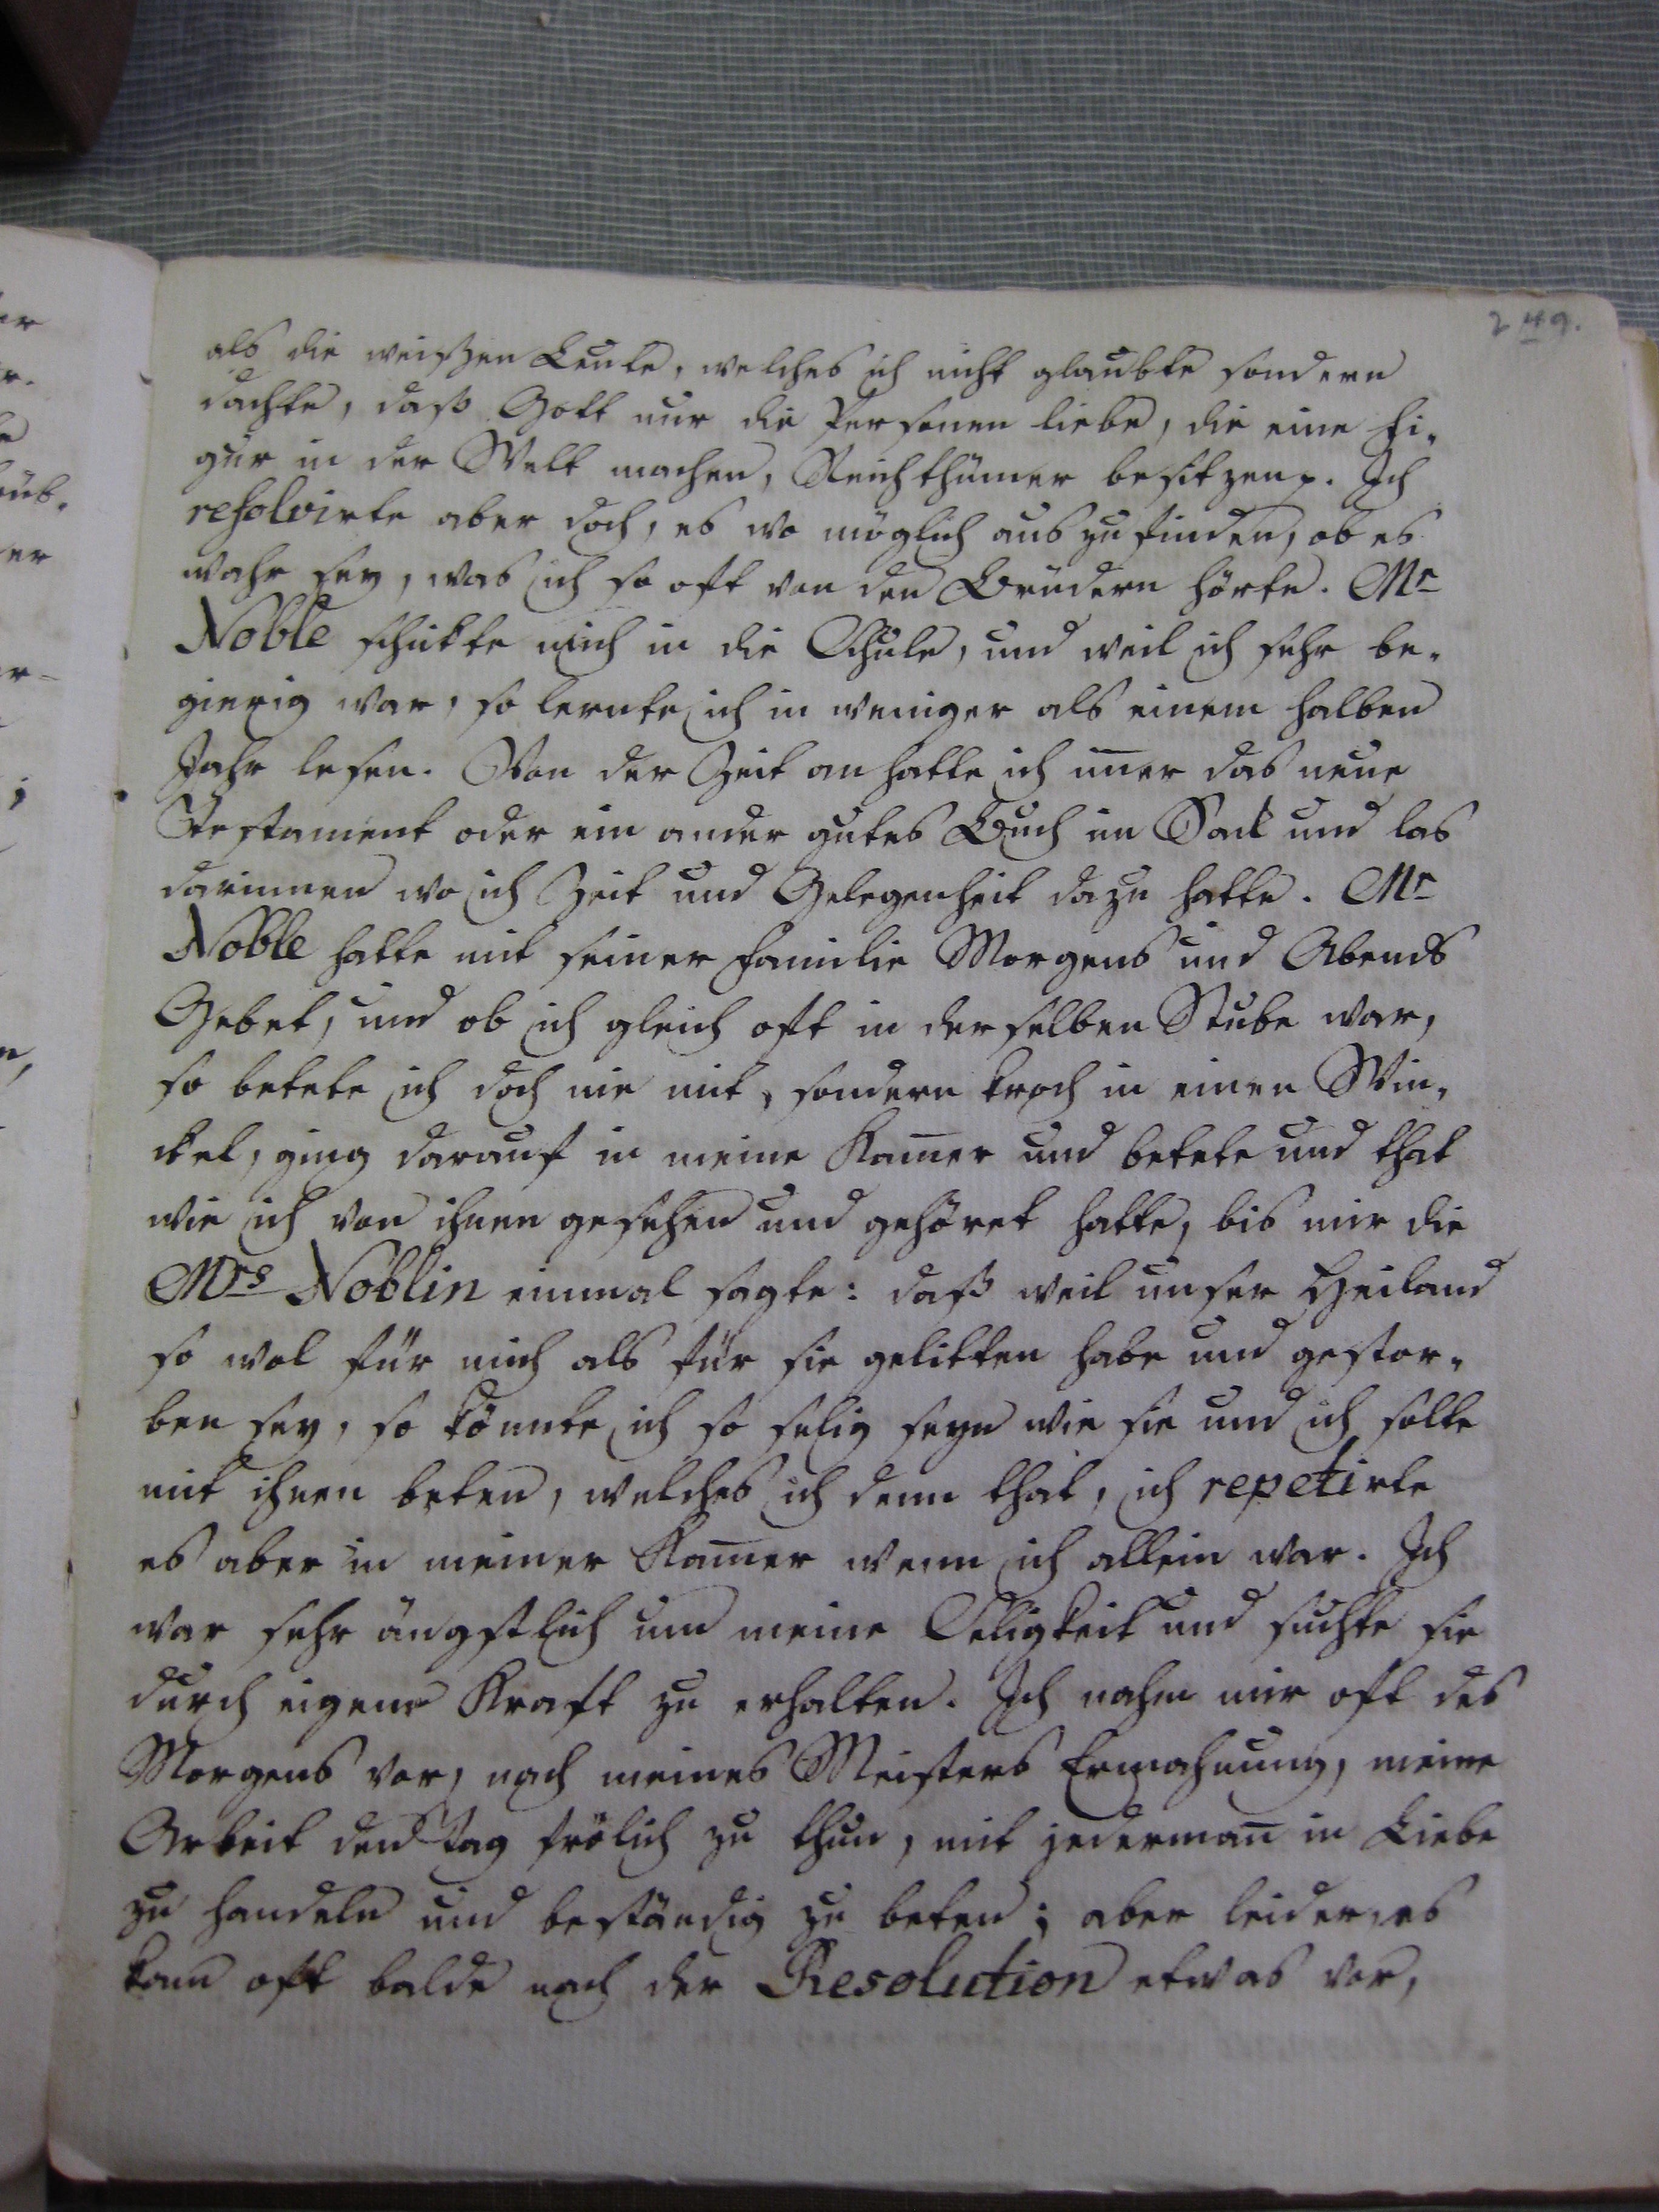 249.
als die weißen Leute, welches ich nicht glaubte sondern
dachte, daß Gott nur die Personen liebe, die eine Fi-
gur in der Welt machen, Reichthümer besitzen p. Ich
resolvirte aber doch, es wo möglich auszufinden, ob es
wahr sey, was ich so oft von den Brüdern hörte. Mr
Noble schickte mich in die Schule, und weil ich sehr be-
gierig war, so lernte ich in weniger als einem halben
Jahr lesen. Von der Zeit an hatte ich im̅er das neue
Testament oder ein ander gutes Buch im Sack und las
darinnen wo ich Zeit und Gelegenheit dazu hatte. Mr
Noble hatte mit seiner Familie Morgens und Abends
Gebet, und ob ich gleich oft in derselben Stube war,
so betete ich doch nie mit, sondern kroch in einen Win-
ckel, ging darauf in meine Kam̅er und betete und that
wie ich von ihnen gesehen und gehöret hatte, bis mir die
Mrs Noblin einmal sagte: daß weil unser Heiland
so wol für mich als für sie gelitten habe und gestor-
ben sey, so könnte ich so selig seyn wie sie und ich solte
mit ihnen beten, welches ich denn that, ich repetirte
es aber in meiner Kam̅er wenn ich allein war. Ich
war sehr ängstlich um meine Seligkeit und suchte sie
durch eigene Kraft zu erhalten. Ich nahm mir oft des
Morgens vor, nach meines Meisters Ermahnung, meine
Arbeit den Tag frölich zu thun, mit jederman̅ in Liebe
zu handeln und beständig zu beten; aber leider, es
kam oft balde nach der Resolution etwas vor,